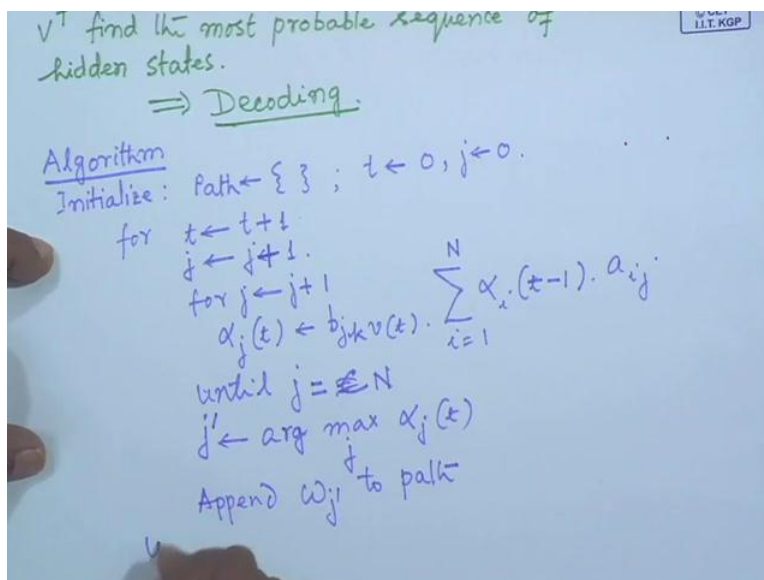 V^T find the most probable sequence of
I.I.T. KGP
hidden states.
⇒ Decoding.
Algorithm
Initialize : Path ← { } ; t ← 0, j ← 0.
for t ← t+1
j ← j+1.
for j ← j+1
α_j(t) ← b_jk v(t) . ∑_{i=1}^{N} α_i(t-1) . a_ij
until j = N
j' ← arg max_j α_j(t)
Append ω_j' to path